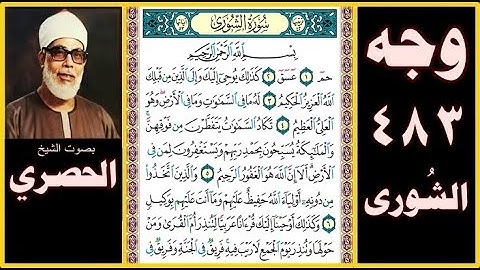 وجه
٤٨٣
الشُورى
سُورَةُ الشُّورَىٰ
بِسْمِ ٱللَّهِ ٱلرَّحْمَٰنِ ٱلرَّحِيمِ
حمٓ ١ عٓسٓقٓ ٢ كَذَٰلِكَ يُوحِيٓ إِلَيْكَ وَإِلَى ٱلَّذِينَ مِن قَبْلِكَ
ٱللَّهُ ٱلْعَزِيزُ ٱلْحَكِيمُ ٣ لَهُۥ مَا فِي ٱلسَّمَٰوَٰتِ وَمَا فِي ٱلْأَرْضِ وَهُوَ
ٱلْعَلِيُّ ٱلْعَظِيمُ ٤ تَكَادُ ٱلسَّمَٰوَٰتُ يَتَفَطَّرْنَ مِن فَوْقِهِنَّ
وَٱلْمَلَٰٓئِكَةُ يُسَبِّحُونَ بِحَمْدِ رَبِّهِمْ وَيَسْتَغْفِرُونَ لِمَن فِي
ٱلْأَرْضِ أَلَآ إِنَّ ٱللَّهَ هُوَ ٱلْغَفُورُ ٱلرَّحِيمُ ٥ وَٱلَّذِينَ ٱتَّخَذُوا۟
مِن دُونِهِۦٓ أَوْلِيَآءَ ٱللَّهُ حَفِيظٌ عَلَيْهِمْ وَمَآ أَنتَ عَلَيْهِم بِوَكِيلٍ
٦ وَكَذَٰلِكَ أَوْحَيْنَآ إِلَيْكَ قُرْءَانًا عَرَبِيًّا لِّتُنذِرَ أُمَّ ٱلْقُرَىٰ وَمَنْ
حَوْلَهَا وَتُنذِرَ يَوْمَ ٱلْجَمْعِ لَا رَيْبَ فِيهِ فَرِيقٌ فِي ٱلْجَنَّةِ وَفَرِيقٌ فِي
بصوت الشيخ
الحصري